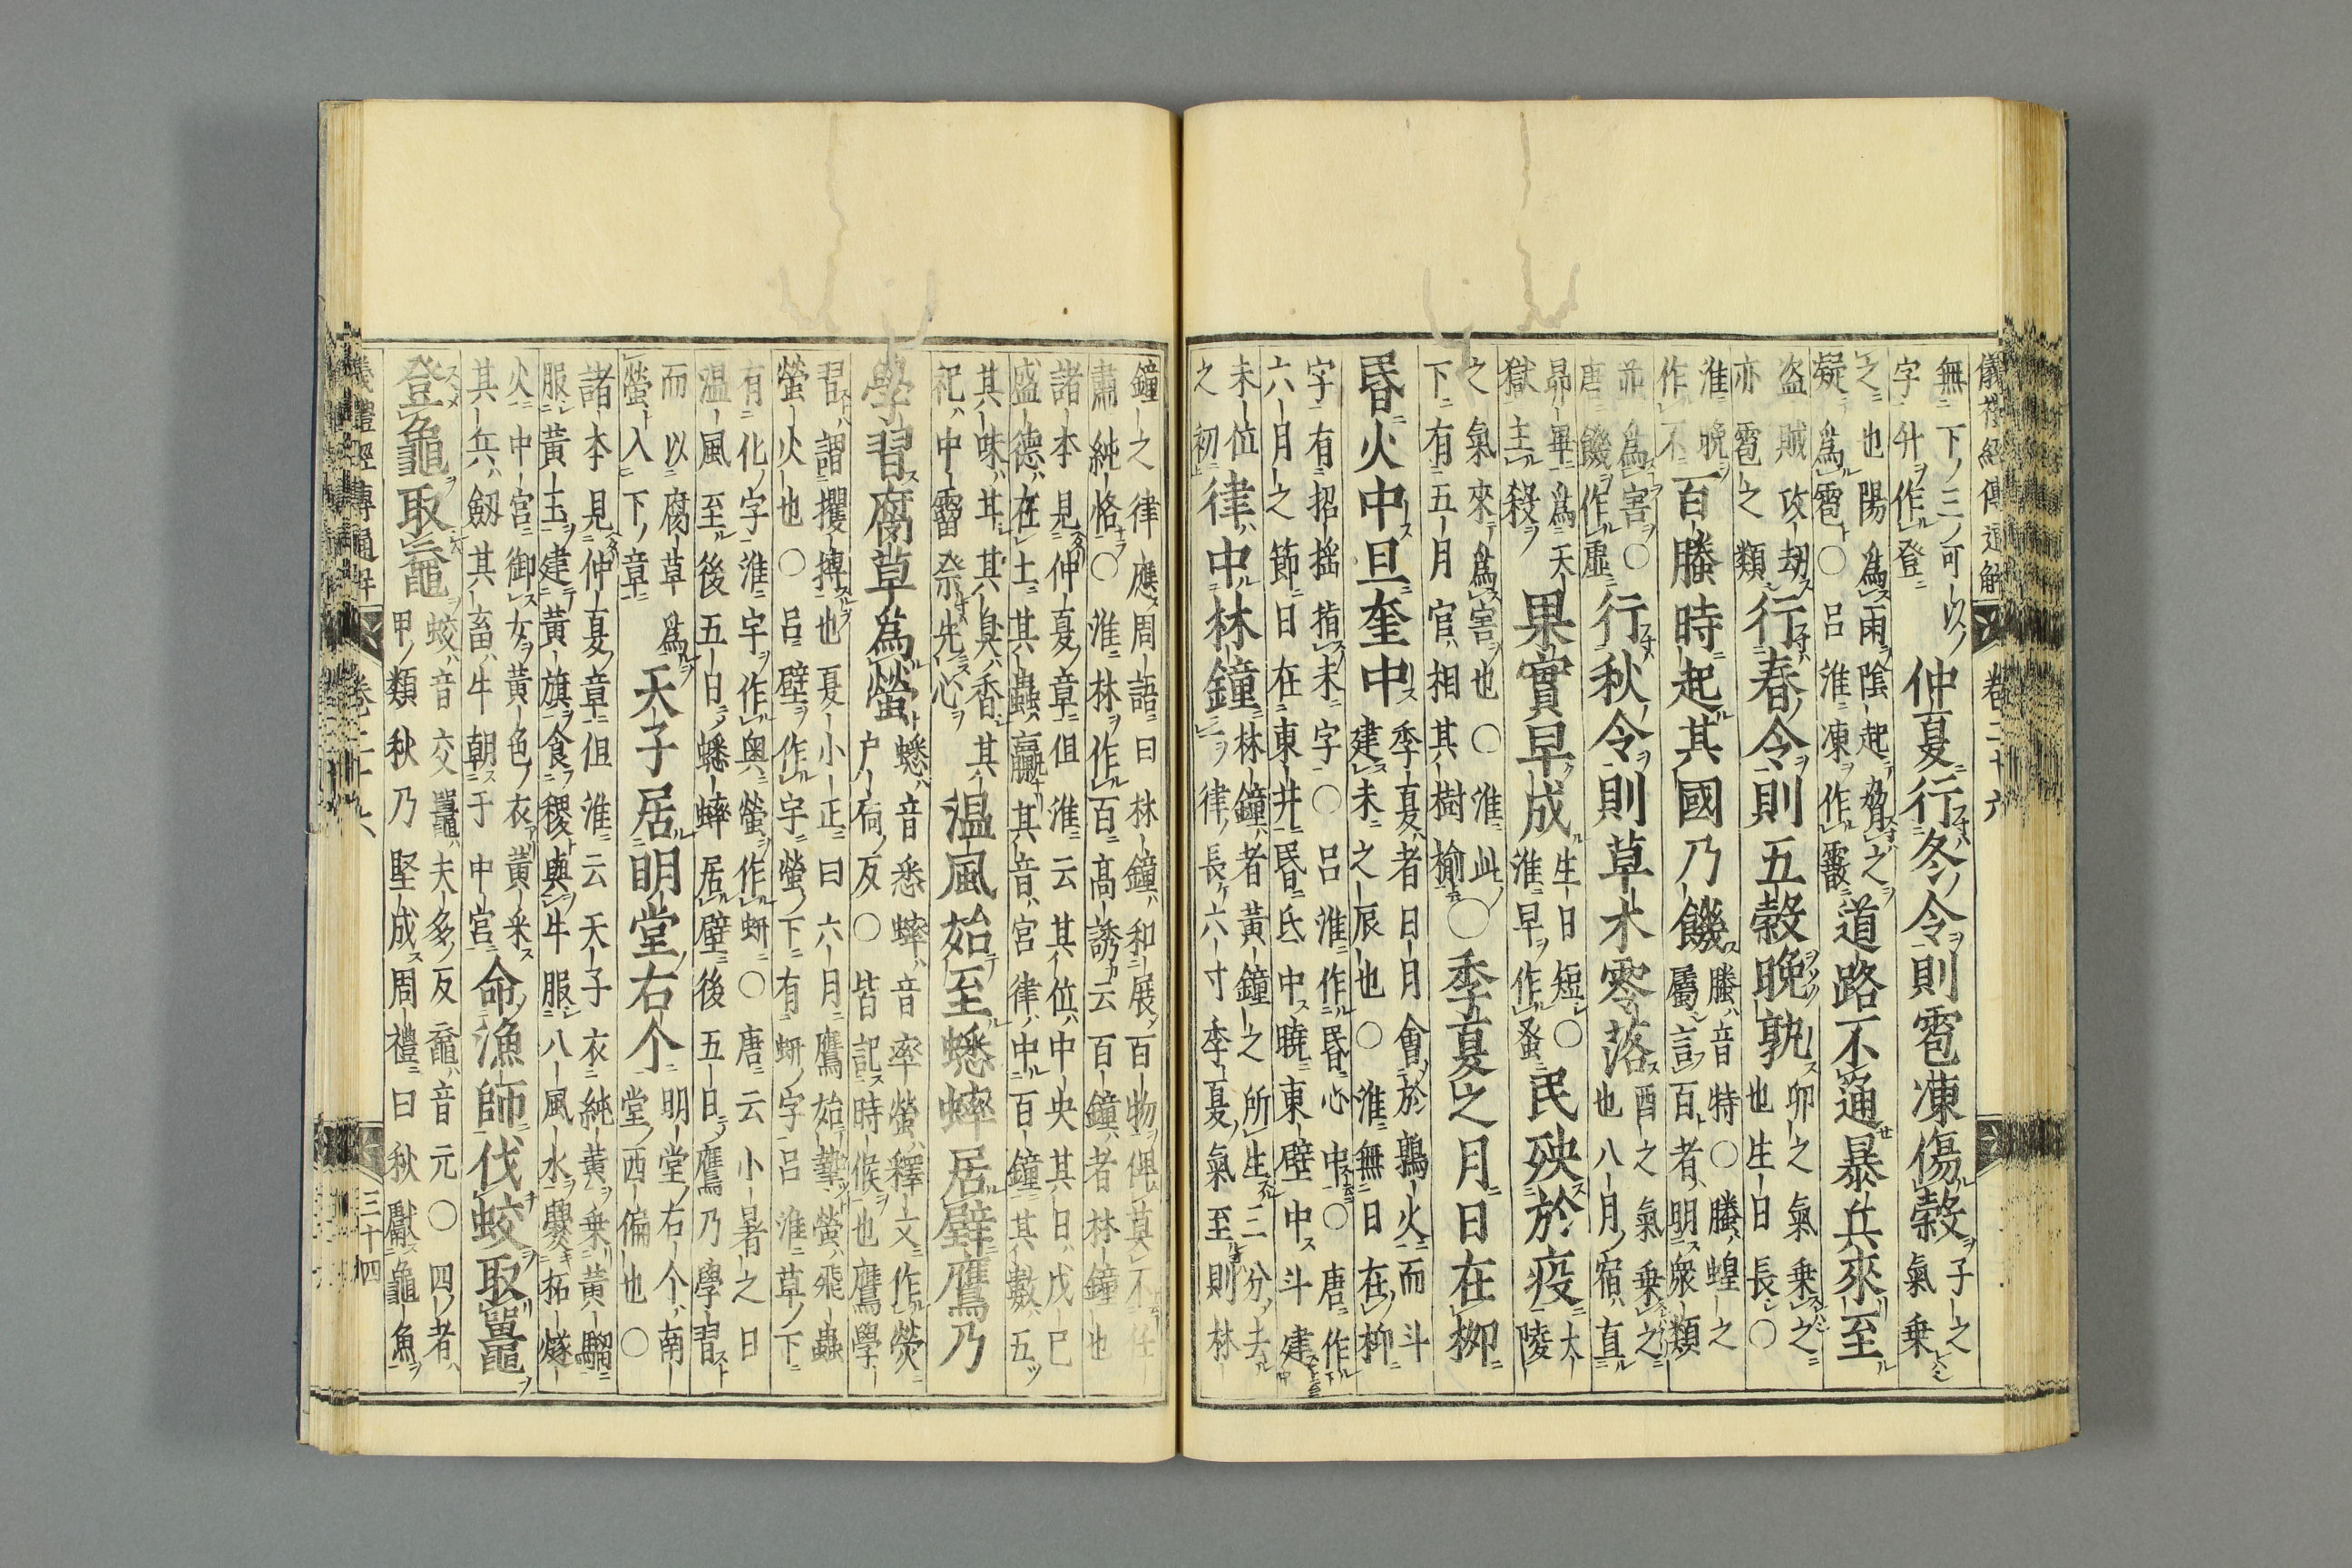 儀禮經傳通解　卷二十六
無下三可以
字升作登
仲夏行冬令則雹凍傷穀
子之
氣乗
之也陽爲雨陰起脅之
凝爲雹○呂淮凍作霰
道路不通暴兵來至
盗賊攻劫
亦雹之類
行春令則五穀晩孰
卯之氣乗之
也生日長○
淮晩
作不
百螣時起其國乃饑
螣音特○螣蝗之
屬言百者明衆類
並爲害○
唐饑作虚
行秋令則草木零落
酉之氣乗之
也八月宿直
昴畢爲天
獄主殺
果實早成
生日短○
淮早作蚤
民殃於疫
大
陵
之氣來爲害也○淮此
下有五月官相其樹楡○
季夏之月日在柳
昏火中旦奎中
季夏者日月會於鶉火而斗
建未之辰也○淮無日在柳
字有招揺指未字○呂淮作昏心中○唐作
六月之節日在東井昏氐中曉東壁中斗建
未位
之初
律中林鐘
林鐘者黄鐘之所生三分去
律長六寸季夏氣至則林
鐘之律應周語曰林鐘和展百物俾莫不任
肅純恪○淮林作百高誘云百鐘者林鐘也
諸本見仲夏章但淮云其位中央其日戊己
盛德在土其蟲蠃其音宮律中百鐘其數五
其味甘其臭香其
祀中霤祭先心
温風始至蟋蟀居壁鷹乃
學習腐草爲螢
蟋音悉蟀音率螢釋文作熒
户扃反○皆記時候也鷹學
習謂攫搏也夏小正曰六月鷹始摯螢飛蟲
螢火也○呂壁作宇螢下有蚈字呂淮草下
有化字淮宇作奥螢作蚈○唐云小暑之日
温風至後五日蟋蟀居壁後五日鷹乃學習
而以腐草爲
螢入下章
天子居明堂右个
明堂右个南
堂西偏也○
諸本見仲夏章但淮云天子衣純黄乗黄騮
服黄玉建黄旗食稷與牛服八風水爨拓燧
火中宮御女黄色衣黄采
其兵劒其畜牛朝于中宮
命漁師伐蛟取鼉
登龜取黿
蛟音交鼉夫多反黿音元○四者
甲類秋乃堅成周禮曰秋獻龜魚
儀禮經傳通解　卷二十六　三十四